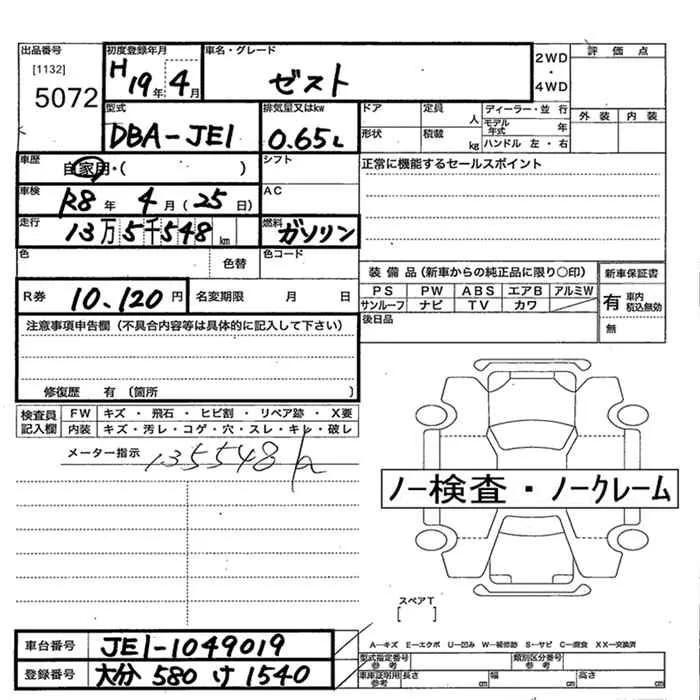 出品番号 [1132] 5072
初度登録年月 H19年 4月
車名・グレード ゼスト
2WD・4WD
評価点
外装 内装
型式 DBA-JE1
排気量又はkw 0.65L
ドア 定員 人
形状 積載 kg
ディーラー・並行
モデル年式 年
ハンドル 左・右
車歴 自家用・( )
シフト
正常に機能するセールスポイント
車検 R8年 4月(25日)
AC
走行 13万5千548km
燃料 ガソリン
色 色替 色コード
装備品(新車からの純正品に限り〇印)
新車保証書
PS PW ABS エアB アルミW
サンルーフ ナビ TV カワ
有 車内積込無効
無
R券 10,120円
名変期限 月 日
後日品
注意事項申告欄(不具合内容等は具体的に記入して下さい)
修復歴 有(箇所 )
検査員記入欄
FW キズ・飛石・ヒビ割・リペア跡・X要
内装 キズ・汚レ・コゲ・穴・スレ・キレ・破レ
メーター指示 135548
ノー検査・ノークレーム
スペアT
[ ]
車台番号 JE1-1049019
登録番号 大分 580 け 1540
A-キズ E-エクボ U-凹み W-補修跡 S-サビ C-腐食 XX-交換済
型式指定番号 参考
類別区分番号 参考
車庫証明用参考 長さ cm 幅 cm 高さ cm